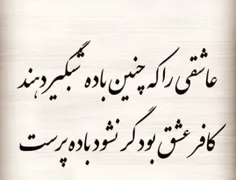 عاشقی را که چنین باده شبگیر دهند
کافر عشق بود گر نشود باده پرست